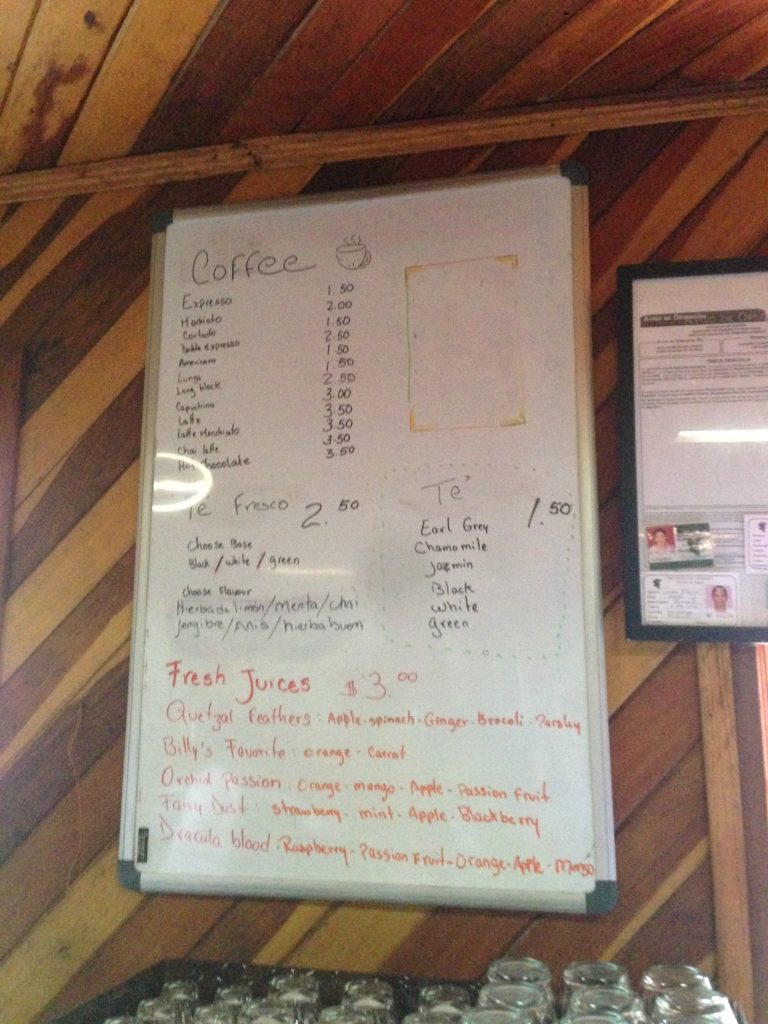 Coffee
Expresso 1.50
Machiato 2.00
Cortado 1.50
Doble expresso 2.50
Americano 1.50
Lungo 1.50
Long black 2.50
Capuchino 3.00
Latte 3.50
Latte Macchiato 3.50
Chai latte 3.50
Hot chocolate 3.50
Te Fresco 2.50
Choose Base
Black / white / green
Choose Flavour
Hierba de limón/menta/chai
Jengibre/Anis/hierba buen
Te' 1.50
Earl Grey
Chamomile
Jazmin
Black
White
Green
Fresh Juices $3.00
Quetzal Feathers : Apple-spinach-Ginger-Brocoli-Parsley
Billy's Favorite : orange - Carrot
Orchid Passion : Orange-mango-Apple-Passion Fruit
Fairy Dust : strawberry-mint-Apple-Blackberry
Dracula blood : Raspberry-Passion Fruit-Orange-Apple-Mango